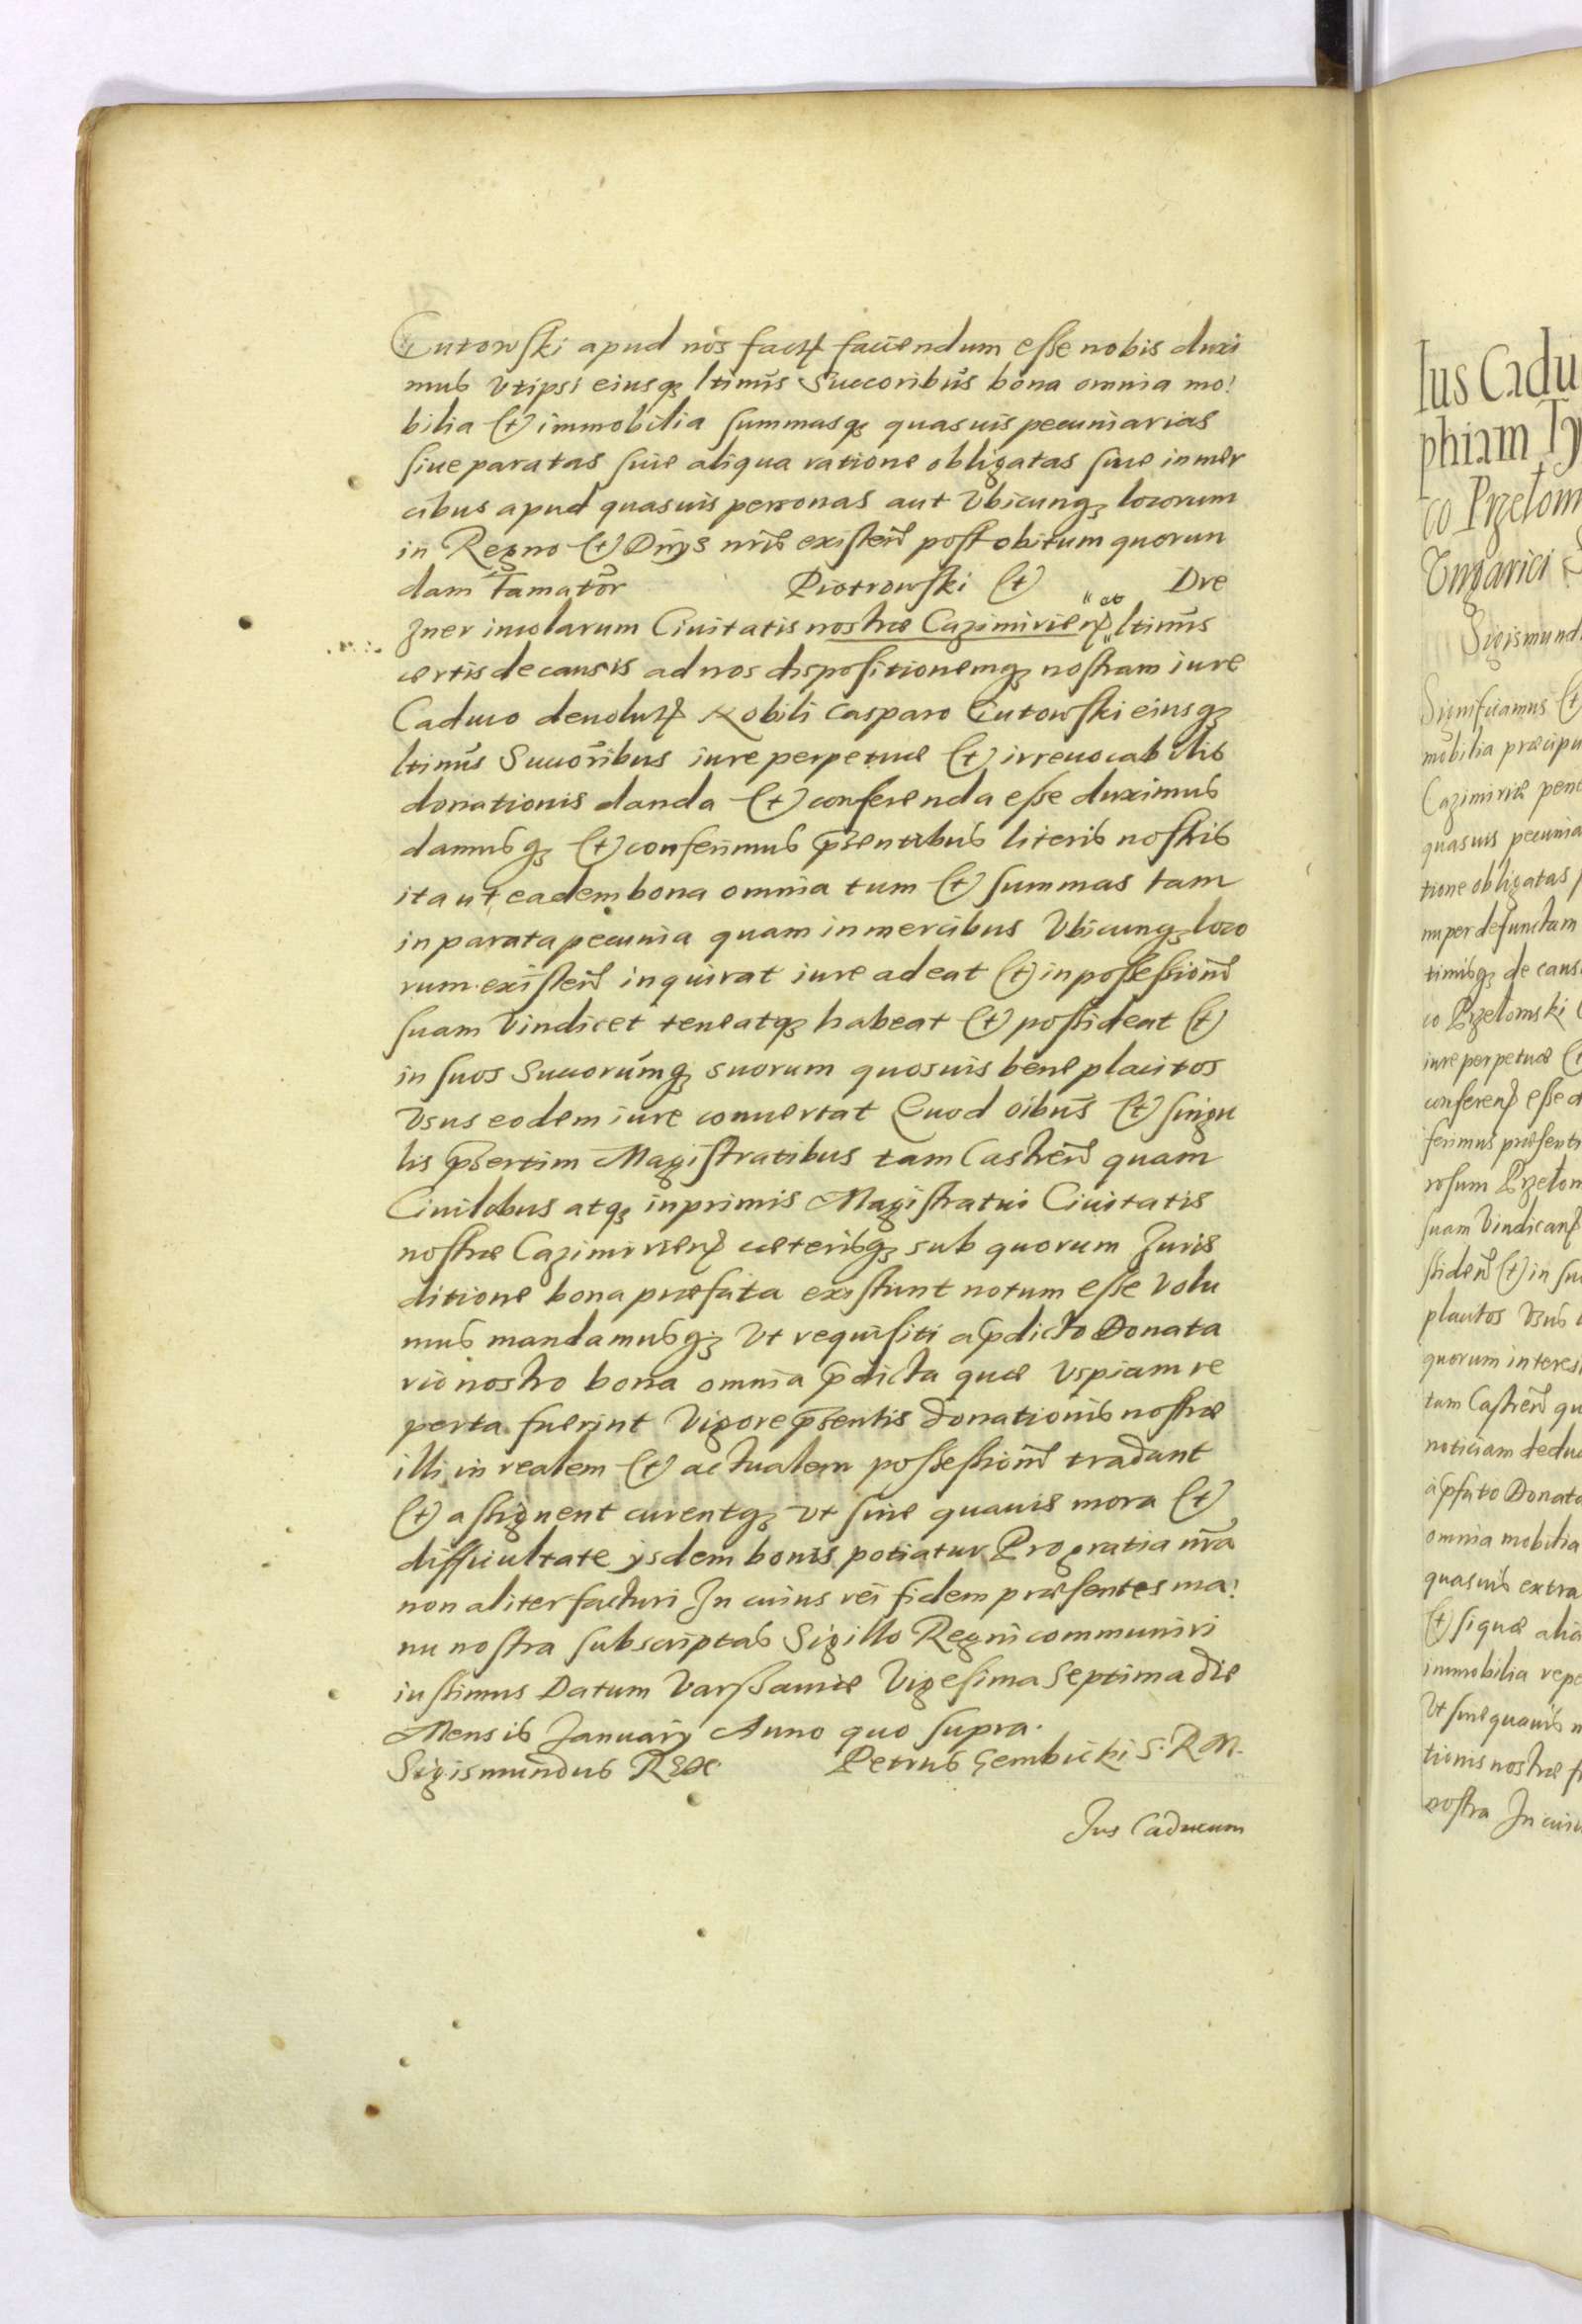 Cutowski apud nos fact faciendum esse nobis duxi
mus Vt ipsi eiusq ltimis Succoribus bona omnia mo
bilia et immobilia summasq quasuis pecuniarias
siue paratas siue aliqua ratione obligatas siue in mer
cibus apud quasuis personas aut Vbicunq locorum
in Regno et Dnijs nris existen post obitum quorun
dam Famator Piotrowski et Dre
zner incolarum Ciuitatis nostræ Cazimirien ltimis
certis de causis ad nos dispositionemq nostram iure
Caduco deuolut Nobili Casparo Cutowski eiusq
ltimis Succoribus iure perpetuæ et irreuocabilis
donationis danda et conferenda esse duximus
damusq et conferimus pñsentibus literis nostris
ita ut eadem bona omnia tum et summas tam
in parata pecunia quam in mercibus Vbicunq loco
rum existen inquirat iure adeat et in possessionē
suam Vindicet teneatq habeat et possideat et
in suos Succorumq suorum quosuis beneplacitos
Vsus eodem iure conuertat Quod oibus et singu
lis pñsertim Magistratibus tam Castren quam
Ciuilibus atq inprimis Magistratui Ciuitatis
nostræ Cazimirien cæterisq sub quorum Juris
ditione bona præfata existunt notum esse Volu
mus mandamusq Vt requisiti a pdicto Donata
rio nostro bona omnia pdicta quæ Vspiam re
perta fuerint Vigore pñsentis donationis nostræ
illi in realem et actualem possessionē tradant
et assignent curentq Vt sine quauis mora et
difficultate ijsdem bonis potiatur Pro gratia nra
non aliter facturi In cuius rei fidem præsentes ma
nu nostra subscriptas Sigillo Regni communiri
iussimus Datum Varssauiæ Vigesima Septima die
Mensis January Anno quo supra.
Sigismundus Rex Petrus Gembicki S. R M.
Jus Caducum
Ius Cadu
phiam Ty
co Przełom
Vngarici
Sigismund
Significamus et
mobilia præcipu
Cazimiriæ pene
quasuis pecunia
tione obligatas
nuper defunctam
timisq de caus
co Przełomski
iure perpetuæ
conferen esse d
ferimus præsenti
rosum Przełom
suam Vindican
ssiden et in su
placitos Vsus
quorum interes
tam Castren qu
noticiam dedu
a pfato Donata
omnia mobilia
quasuis extra
et si quæ alia
immobilia repe
Vt sine quauis m
tionis nostræ
nostra In cuiu